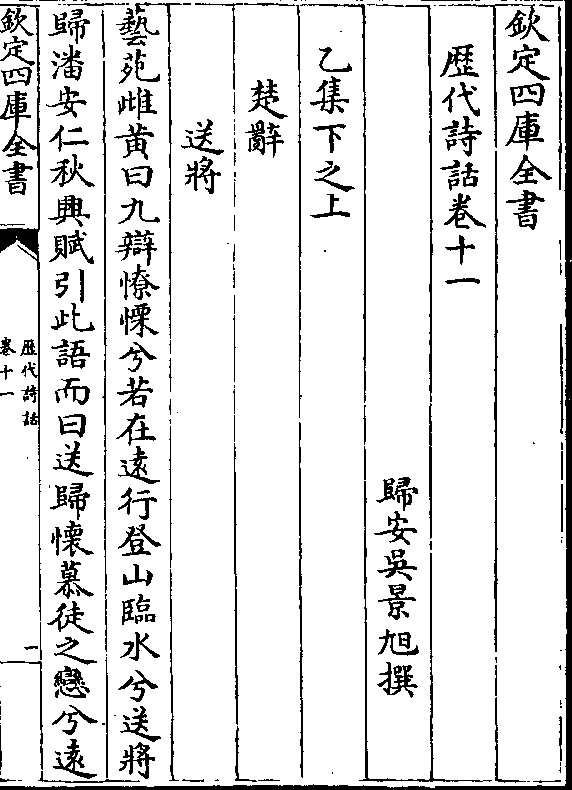 欽定四庫全書
歴代詩話卷十一
歸安吳景旭撰
乙集下之上
楚辭
送將
藝苑雌黄曰九辯憭慄兮若在逺行登山臨水兮送將
歸潘安仁秋興賦引此語而曰送歸懐慕徒之戀兮逺
欽定四庫全書
歴代詩話
卷十一
一